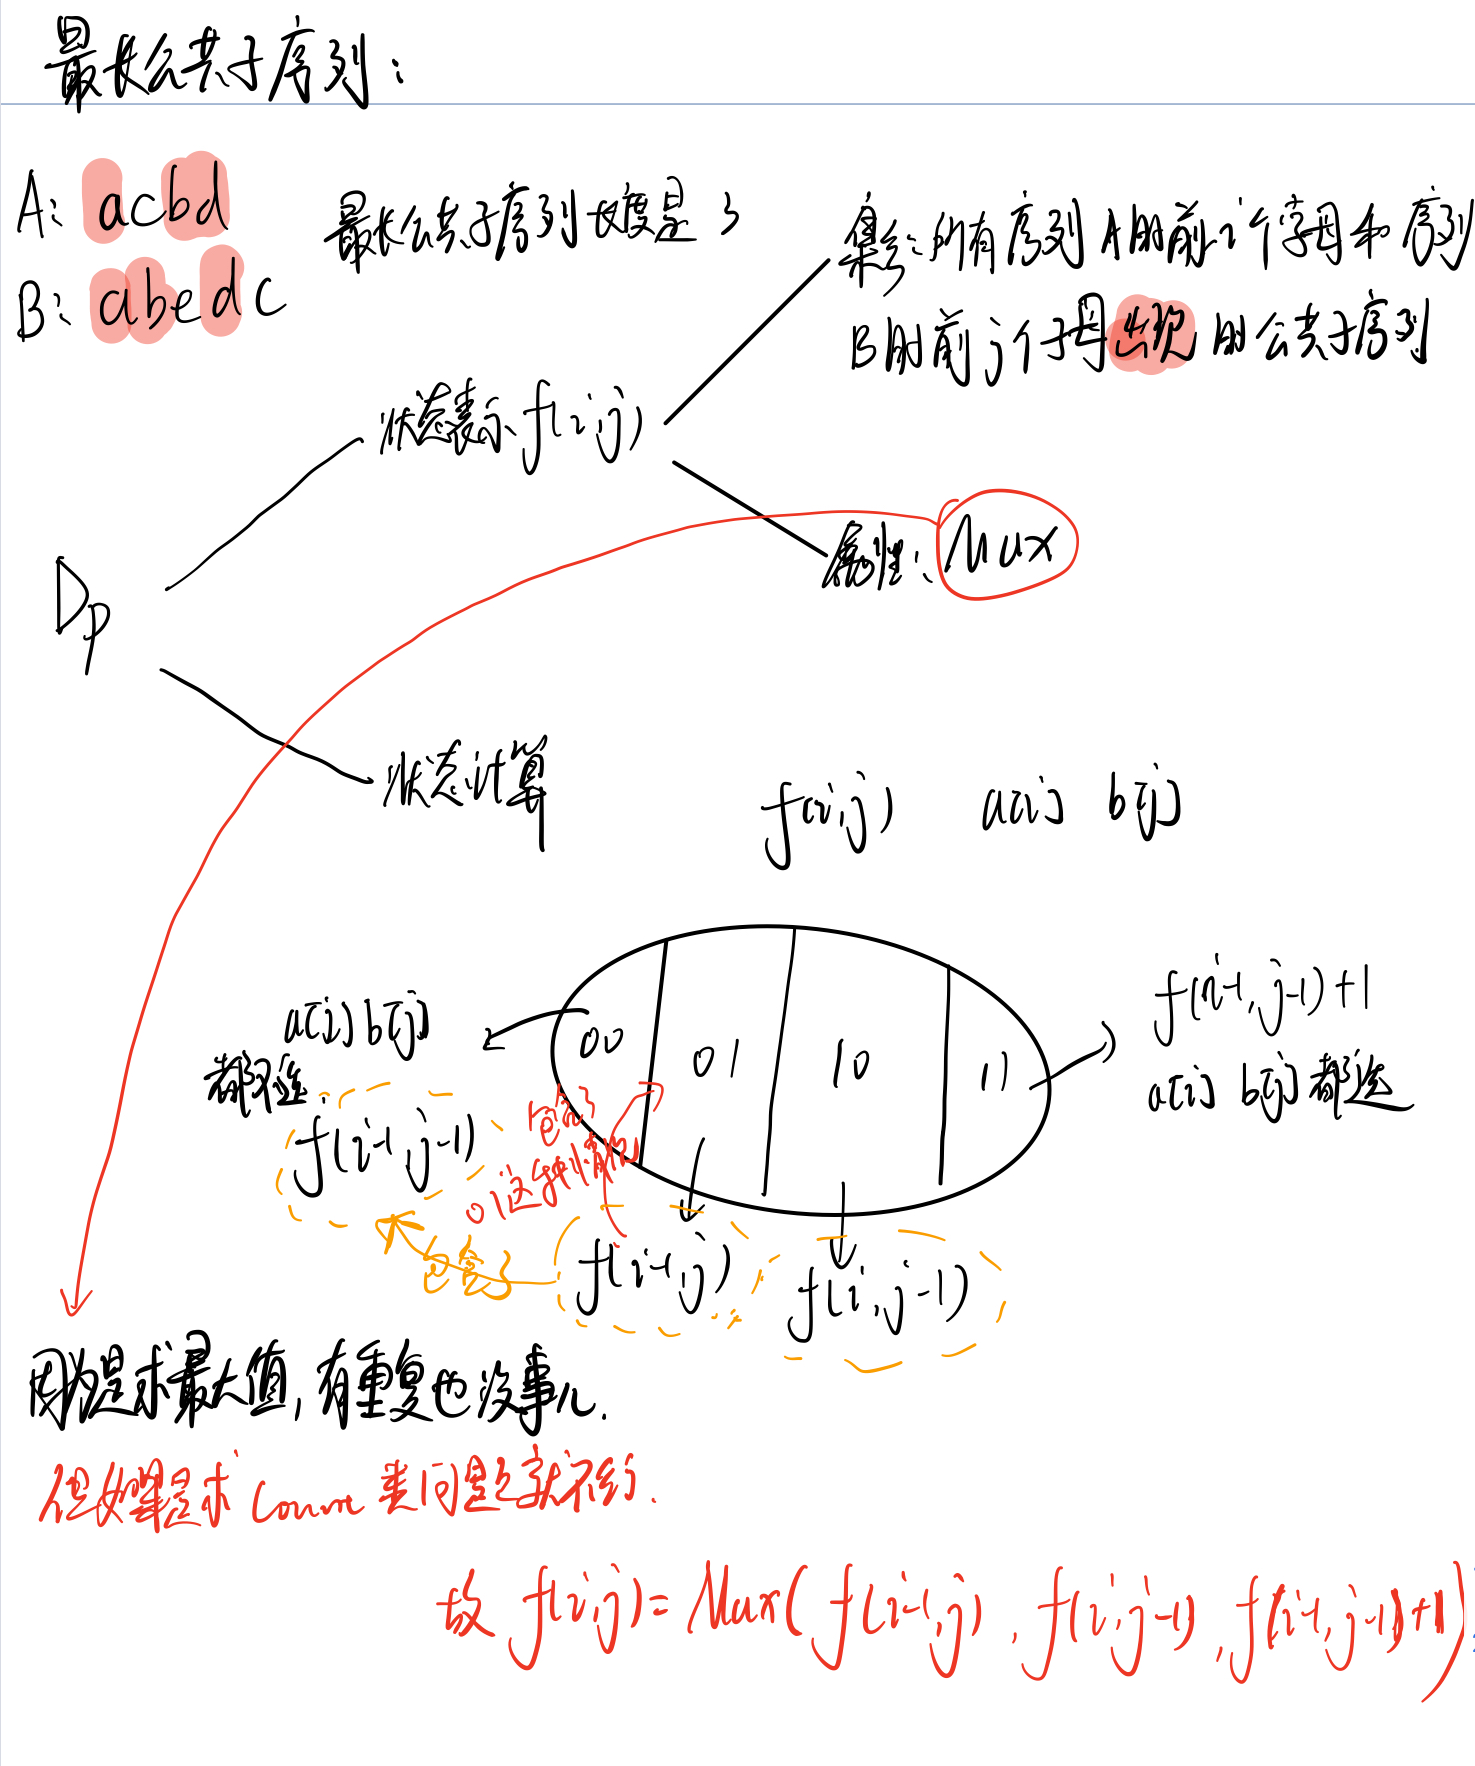 最长公共子序列：
A: acbd
B: abedc
最长公共子序列长度是 3
集合：所有序列 A 的前 i 个字母和序列
B 的前 j 个字母出现的公共子序列
状态表示 f(i,j)
属性：Max
Dp
状态计算
f(i,j) a[i] b[j]
00 01 10 11
a[i] b[j]
都不选
f(i-1, j-1)
f(i-1, j-1)+1
a[i] b[j] 都选
包含了
01这种情况
包含了
f(i-1, j)
f(i, j-1)
因为是求最大值，有重复也没事儿.
但如果是求 Count 类问题就不行.
故 f(i,j) = Max( f(i-1,j) , f(i,j-1) , f(i-1,j-1)+1)